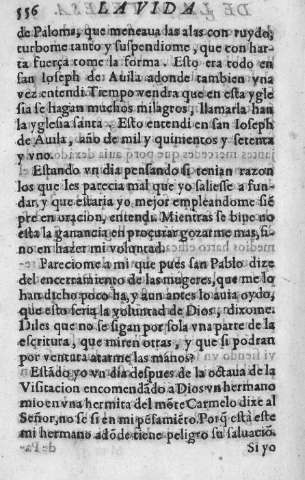 556 LA VIDA
de Paloma, que meneaua las alas con ruydo,
turbome tanto y suspendiome, que con har-
ta fuerça tome la forma. Esto era todo en
san Ioseph de Auila adonde tambien vna
vez entendi. Tiempo vendra que en esta ygle
sia se hagan muchos milagros, llamarla han
la yglesia santa. Esto entendi en san Ioseph
de Auila, año de mil y quinientos y setenta
y vno.
Estando vn dia pensando si tenian razon
los que les parecia mal que yo saliesse a fun-
dar, y que estaria yo mejor empleandome siē
pre en oracion, entendi. Mientras se biue no
esta la ganancia en procurar gozarme mas, si
no en hazer mi voluntad.
Pareciome a mi que pues san Pablo dize
del encerramiento de las mugeres, que me lo
han dicho poco ha, y aun antes lo auia oydo,
que esto seria la voluntad de Dios, dixome.
Diles que no se sigan por sola vna parte de la
escritura, que miren otras, y que si podran
por ventura atarme las manos?
Estādo yo vn dia despues de la octaua de la
Visitacion encomendādo a Dios vn hermano
mio en vna hermita del mōte Carmelo dixe al
Señor, no se si en mi pēsamiēto. Porq̄ està este
mi hermano adōde tiene peligro su saluaciō.
Si yo